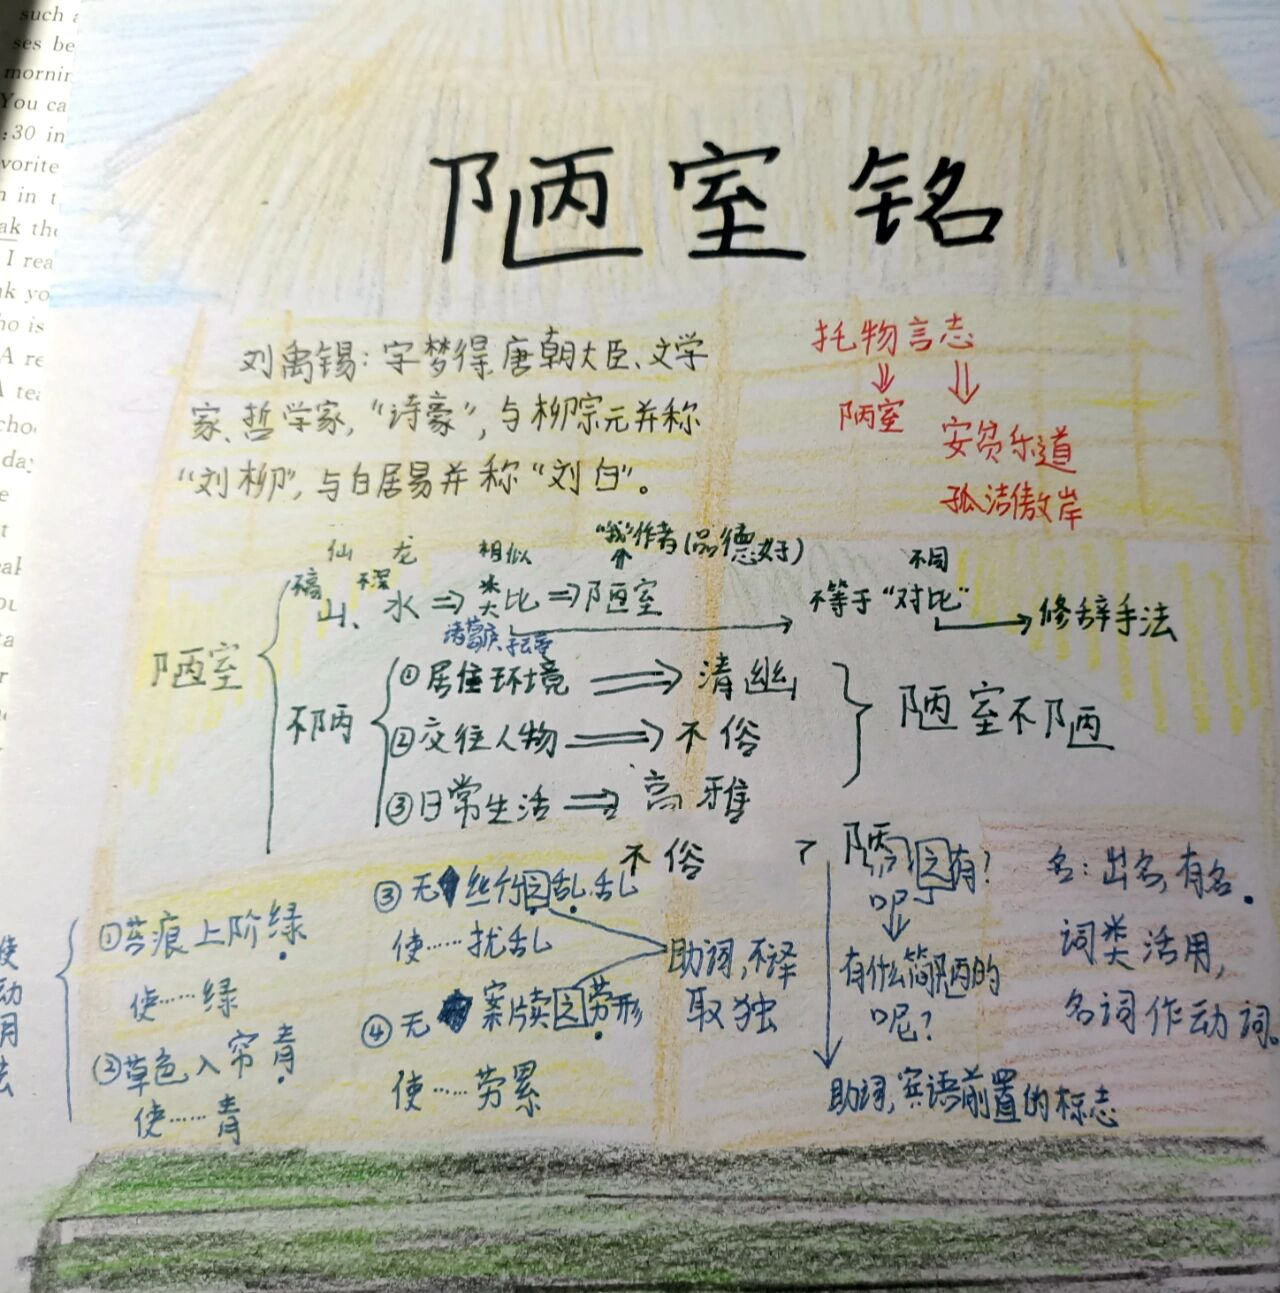 such
ses be
mornin
You ca
:30 in
vorite
n in t
ak the
I rea
nk yo
ho is
A re
A tea
choo
day
陋室铭
刘禹锡：字梦得，唐朝大臣、文学
家、哲学家，“诗豪”，与柳宗元并称
“刘柳”，与白居易并称“刘白”。
托物言志
陋室
安贫乐道
孤洁傲岸
仙 龙 相似 “我”作者（品德好） 不同
不高 不深
山、水 ⇒ 类比 ⇒ 陋室 不等于“对比” → 修辞手法
诸葛庐 子云亭
陋室
不陋
①居住环境 ⇒ 清幽
②交往人物 ⇒ 不俗
③日常生活 ⇒ 高雅
不俗
陋室不陋
使动用法
①苔痕上阶绿
使……绿
②草色入帘青
使……青
③无丝竹之乱
使……扰乱
④无案牍之劳形
使……劳累
助词，不译
取独
之有？
呢
有什么简陋的
呢？
助词，宾语前置的标志
名：出名，有名。
词类活用，
名词作动词。